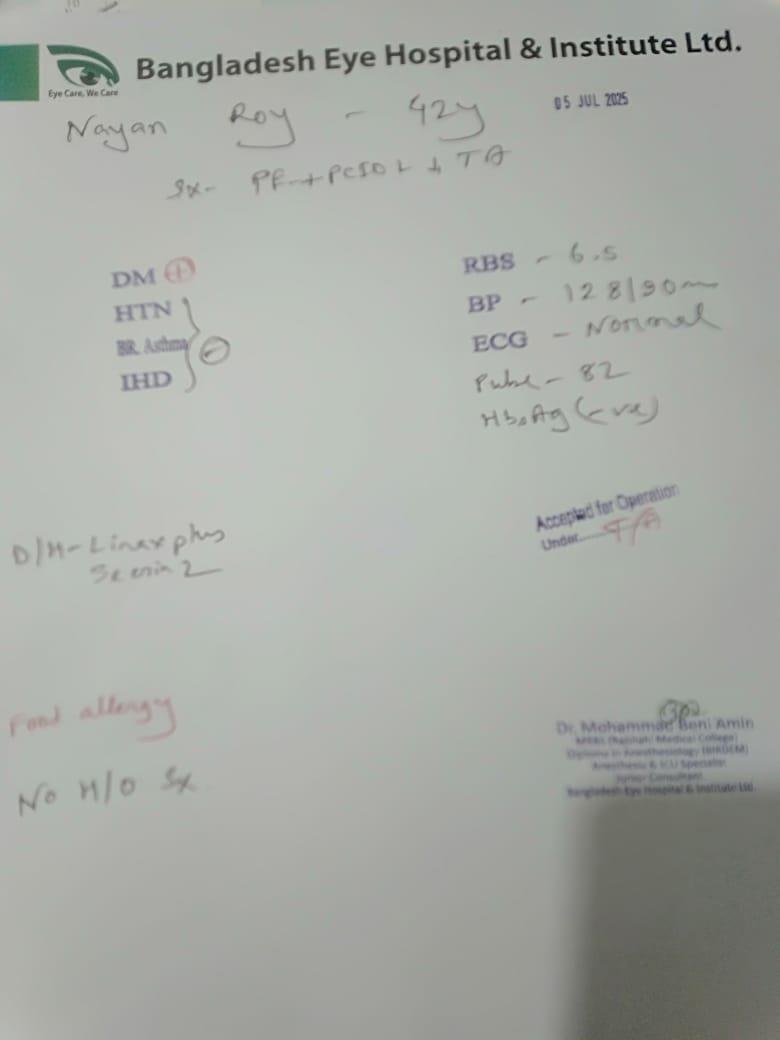 Bangladesh Eye Hospital & Institute Ltd.
Eye Care, We Care
05 JUL 2025
Nayan Roy - 42y
Sx- + PCIOL + TA
DM +
HTN
BR. Asthma
IHD
-
RBS - 6.5
BP - 128/90
ECG - Normal
Pulse - 82
HbsAg (-ve)
D/H- Linax plus
2
Accepted for Operation
Under T/A
Food allergy
No H/O Sx
Dr. Mohammad Beni Amin
MBBS (Rajshahi Medical College)
Diploma in Anesthesiology (BIRDEM)
Anesthesia & ICU Specialist
Junior Consultant
Bangladesh Eye Hospital & Institute Ltd.